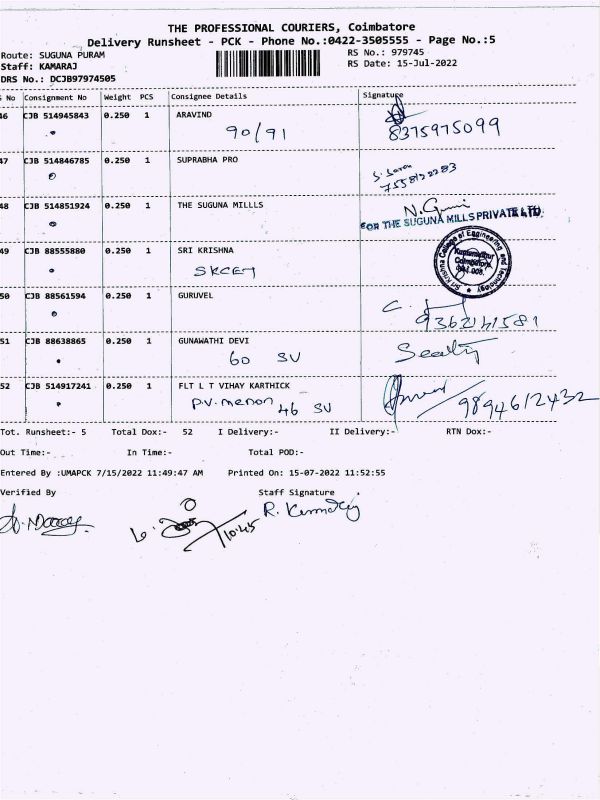 THE PROFESSIONAL COURIERS, Coimbatore
Delivery Runsheet - PCK - Phone No.:0422-3505555 - Page No.:5
Route: SUGUNA PURAM
RS No.: 979745
Staff: KAMARAJ
RS Date: 15-Jul-2022
DRS No.: DCJB97974505
S No Consignment No Weight PCS Consignee Details Signature
46 CJB 514945843 0.250 1 ARAVIND
90/91 8375975099
47 CJB 514846785 0.250 1 SUPRABHA PRO
48 CJB 514851924 0.250 1 THE SUGUNA MILLLS
FOR THE SUGUNA MILLS PRIVATE LTD.
49 CJB 88555880 0.250 1 SRI KRISHNA
SKCET
Sri Krishna College of Engineering and Technology
Coimbatore
641 008.
50 CJB 88561594 0.250 1 GURUVEL
51 CJB 88638865 0.250 1 GUNAWATHI DEVI
60 SV
52 CJB 514917241 0.250 1 FLT L T VIHAY KARTHICK
P.V. menon 46 SV 9894612432
Tot. Runsheet:- 5 Total Dox:- 52 I Delivery:- II Delivery:- RTN Dox:-
Out Time:- In Time:- Total POD:-
Entered By :UMAPCK 7/15/2022 11:49:47 AM Printed On: 15-07-2022 11:52:55
Verified By Staff Signature
10:45